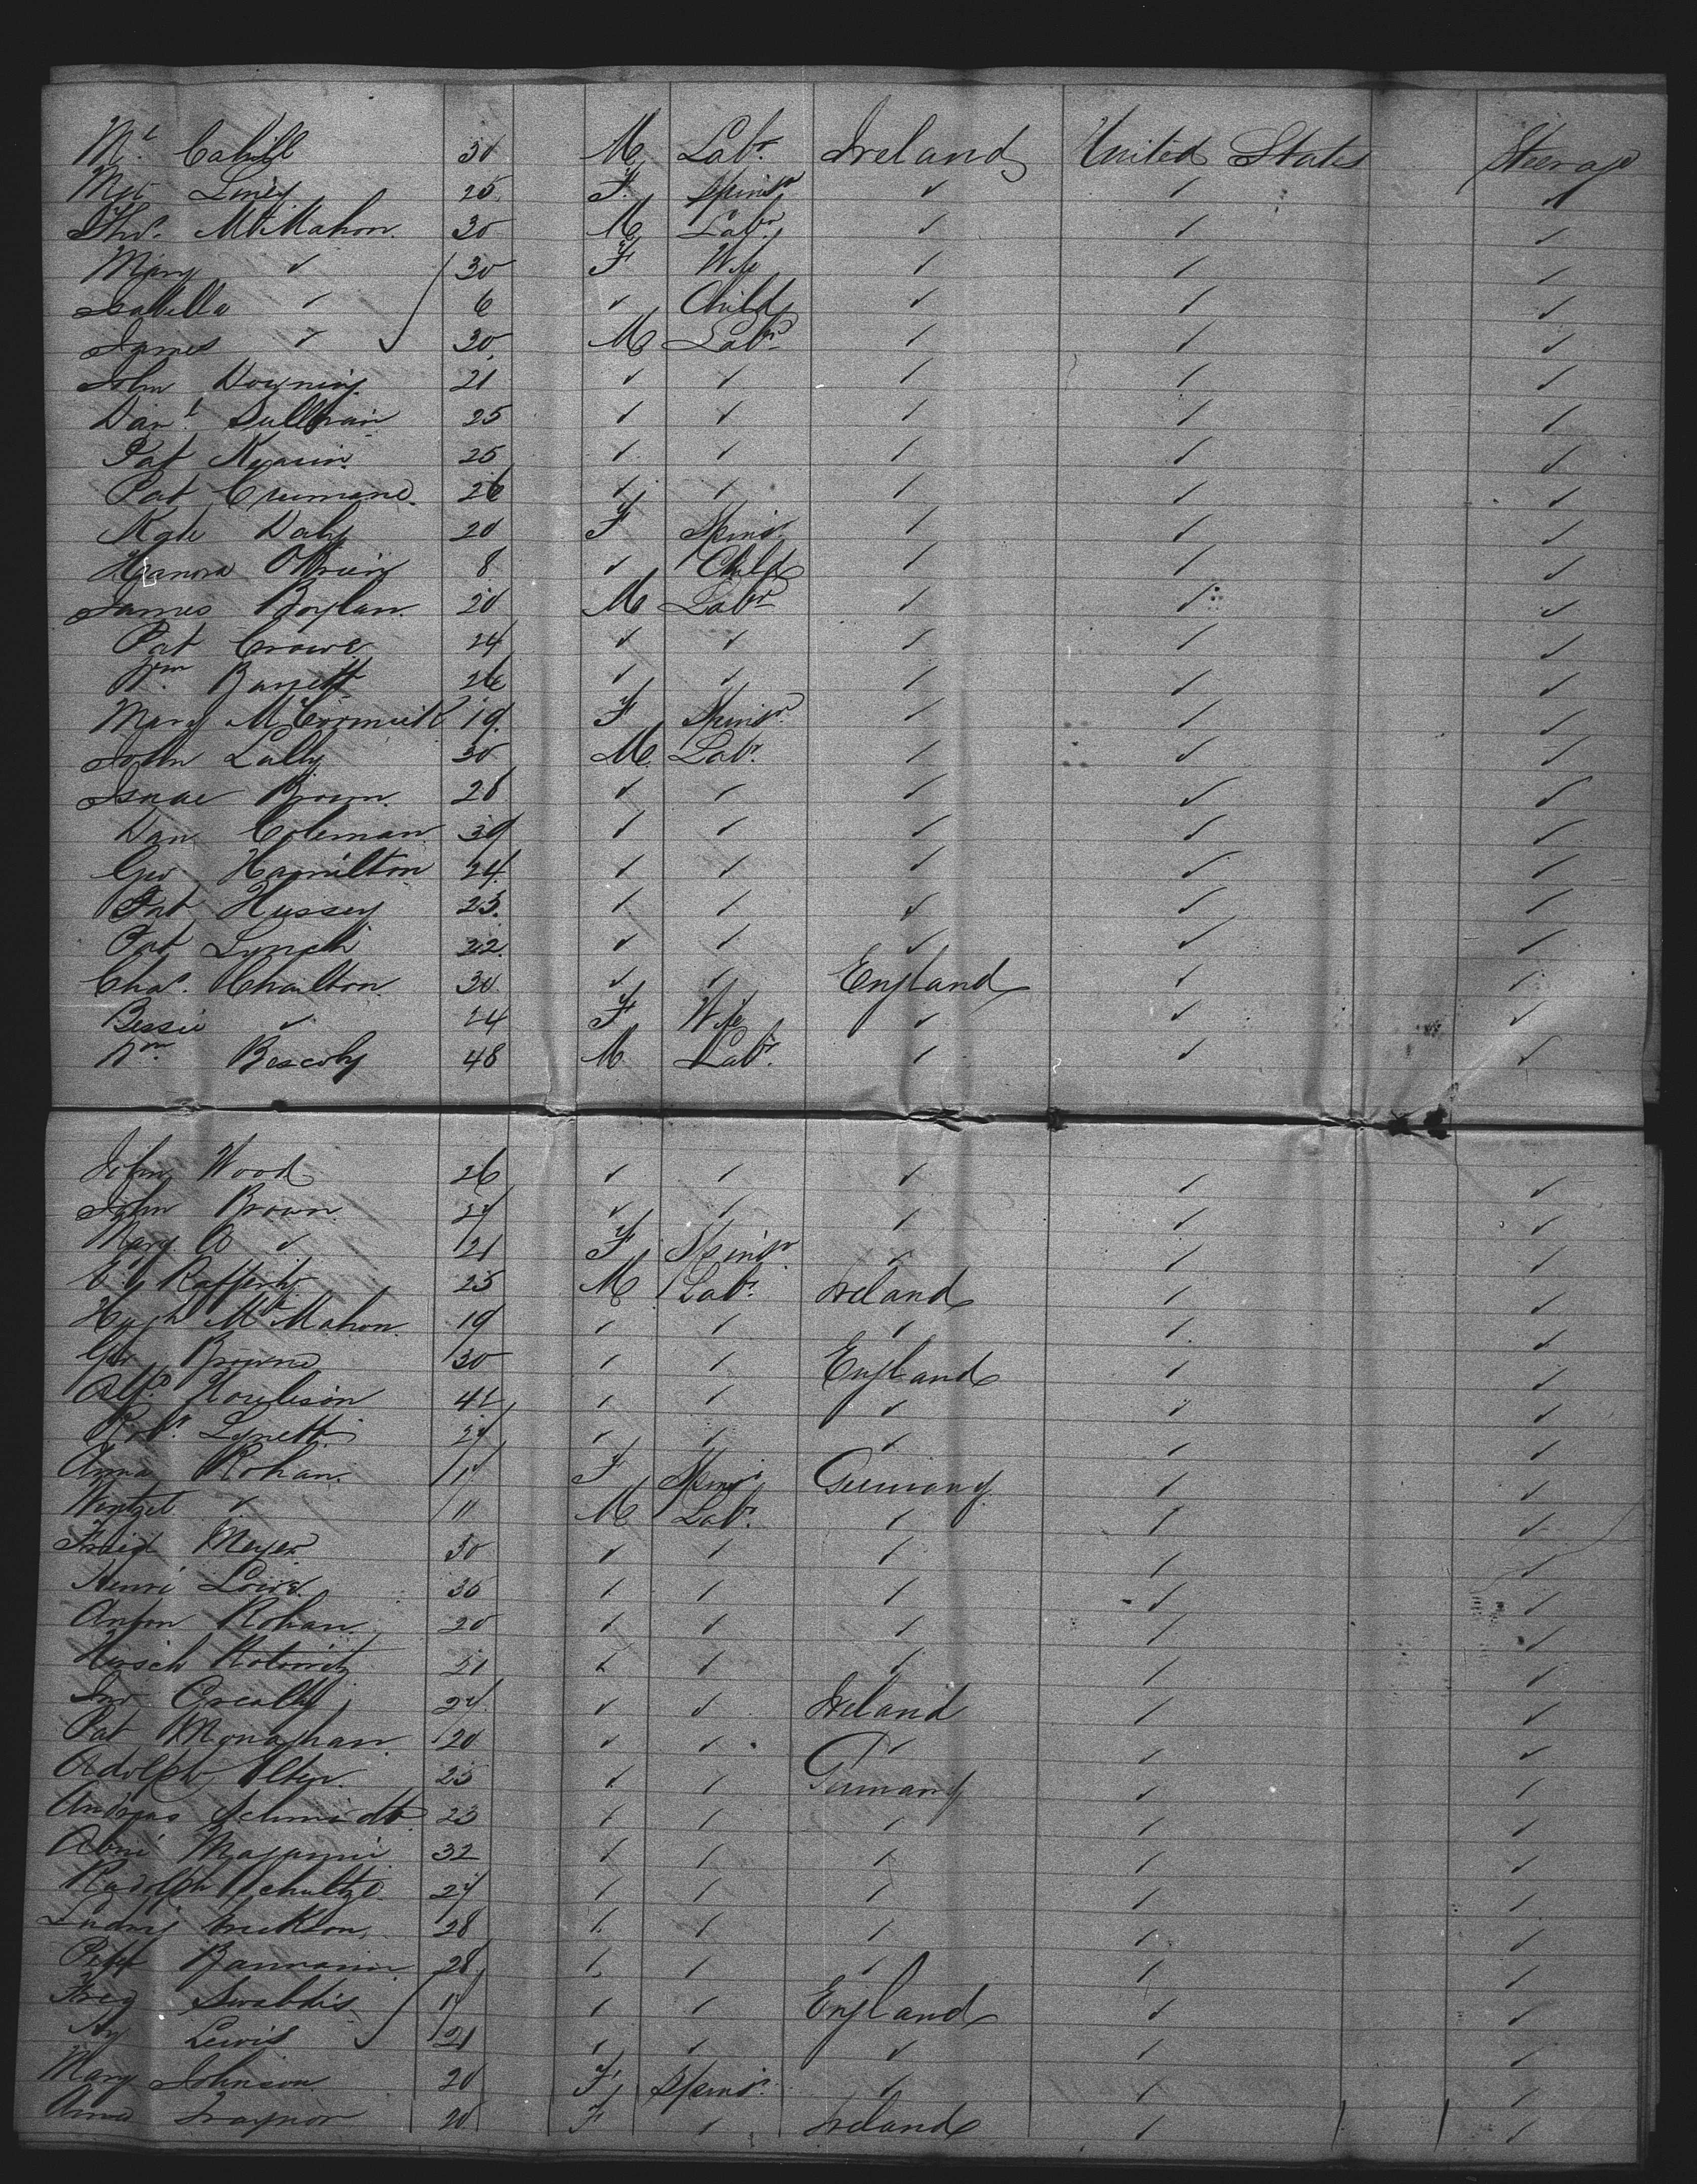 Ml Cahill 30 M Labr Ireland United States Steerage
Mgt 25 F Spinsr ✓ ✓ ✓
Thos McMahon 30 M Labr ✓ ✓ ✓
Mary ✓ 30 F Wife ✓ ✓ ✓
Isabella ✓ 6 ✓ Child ✓ ✓ ✓
James ✓ 30 M Labr ✓ ✓ ✓
John Downing 21 ✓ ✓ ✓ ✓ ✓
Danl Sullivan 25 ✓ ✓ ✓ ✓ ✓
Pat 25 ✓ ✓ ✓ ✓ ✓
Pat Crimmane 26 ✓ ✓ ✓ ✓ ✓
Kate Daly 20 F Spinsr ✓ ✓ ✓
Hanora OBrien 8 ✓ Child ✓ ✓ ✓
James Boylan 20 M Labr ✓ ✓ ✓
Pat Crowe 24 ✓ ✓ ✓ ✓ ✓
Wm Barrett 26 ✓ ✓ ✓ ✓ ✓
Mary McCormick 19 F Spinsr ✓ ✓ ✓
John Lally 30 M Labr ✓ ✓ ✓
Isaac Brown 28 ✓ ✓ ✓ ✓ ✓
Dan Coleman 39 ✓ ✓ ✓ ✓ ✓
Geo Hamilton 24 ✓ ✓ ✓ ✓ ✓
Pat Hussey 23 ✓ ✓ ✓ ✓ ✓
Pat Lynch 22 ✓ ✓ ✓ ✓ ✓
Chas Charlton 30 ✓ ✓ England ✓ ✓
Bessie ✓ 24 F Wife ✓ ✓ ✓
Wm Bescoby 48 M Labr ✓ ✓ ✓
John Wood 26 ✓ ✓ ✓ ✓ ✓
John Brown 27 ✓ ✓ ✓ ✓ ✓
Mary A ✓ 21 F Spinsr ✓ ✓ ✓
Rafferty 25 M Labr Ireland ✓ ✓
Hugh McMahon 19 ✓ ✓ ✓ ✓ ✓
Geo Browne 30 ✓ ✓ England ✓ ✓
Alfd 41 ✓ ✓ ✓ ✓ ✓
Robt Lynett 27 ✓ ✓ ✓ ✓ ✓
Anna Rohan 17 F Spinsr Germany ✓ ✓
Wentzel ✓ 11 M Labr ✓ ✓ ✓
Meyer 30 ✓ ✓ ✓ ✓ ✓
Henri Lowe 35 ✓ ✓ ✓ ✓ ✓
Anton Rohan 20 ✓ ✓ ✓ ✓ ✓
Hirsch 21 ✓ ✓ ✓ ✓ ✓
Jno Greally 27 ✓ ✓ Ireland ✓ ✓
Pat Monaghan 20 ✓ ✓ ✓ ✓ ✓
Adolph 25 ✓ ✓ Germany ✓ ✓
Andreas Schmidt 23 ✓ ✓ ✓ ✓ ✓
32 ✓ ✓ ✓ ✓ ✓
Rudolph Schultze 27 ✓ ✓ ✓ ✓ ✓
Ludwig Erickson 28 ✓ ✓ ✓ ✓ ✓
28 ✓ ✓ ✓ ✓ ✓
17 ✓ ✓ England ✓ ✓
Hy Lewis 21 ✓ ✓ ✓ ✓ ✓
Mary Johnson 20 F Spinsr ✓ ✓ ✓
Anne Traynor 20 F ✓ Ireland ✓ ✓